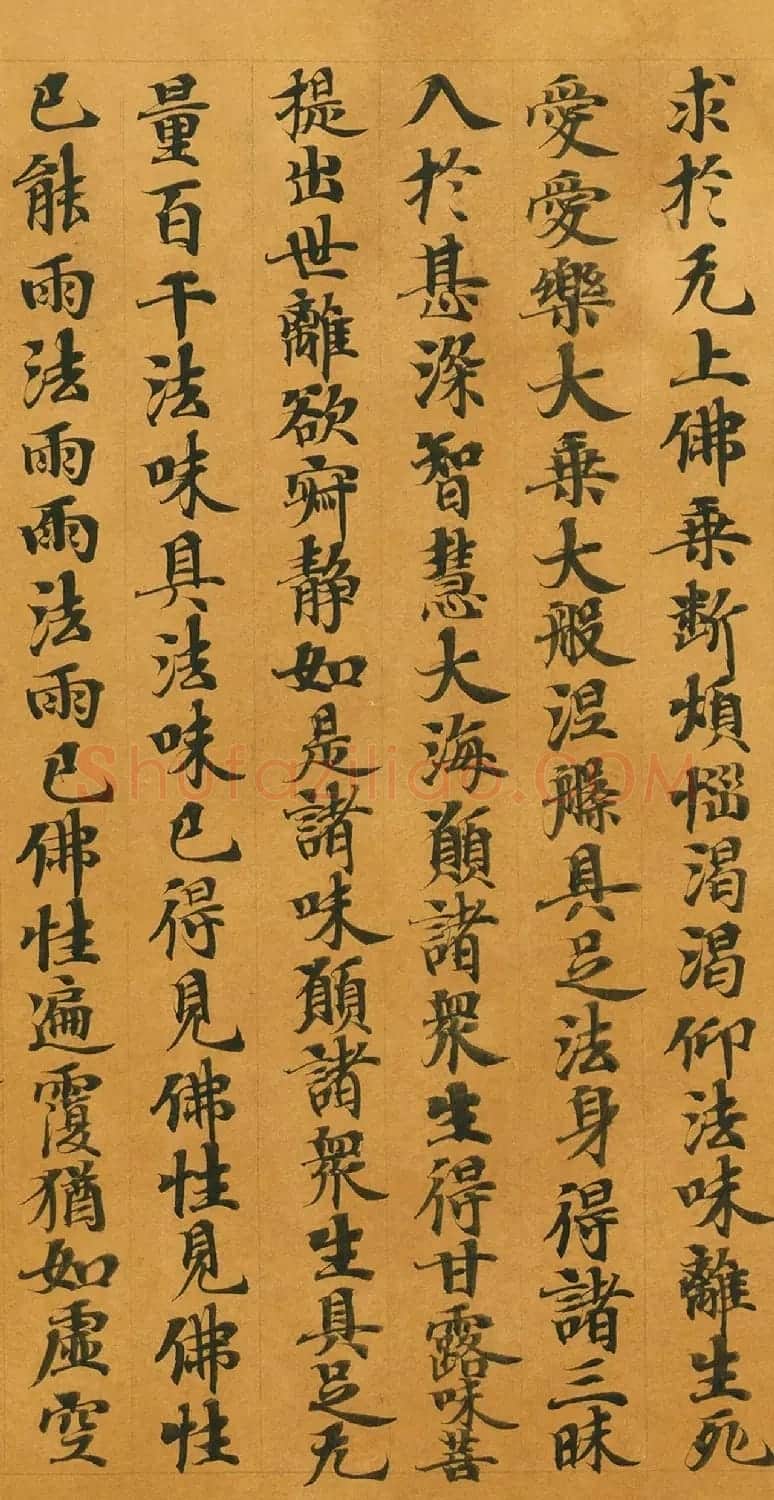 求於无上佛乗断煩惱渇渇仰法味離生死
愛愛樂大乗大般涅槃具足法身得諸三昧
入於甚深智慧大海願諸衆生得甘露味菩
提出世離欲寂静如是諸味願諸衆生具足无
量百千法味具法味已得見佛性見佛性
已能雨法雨雨法雨已佛性遍覆猶如虛空
Shufaziliao.COM